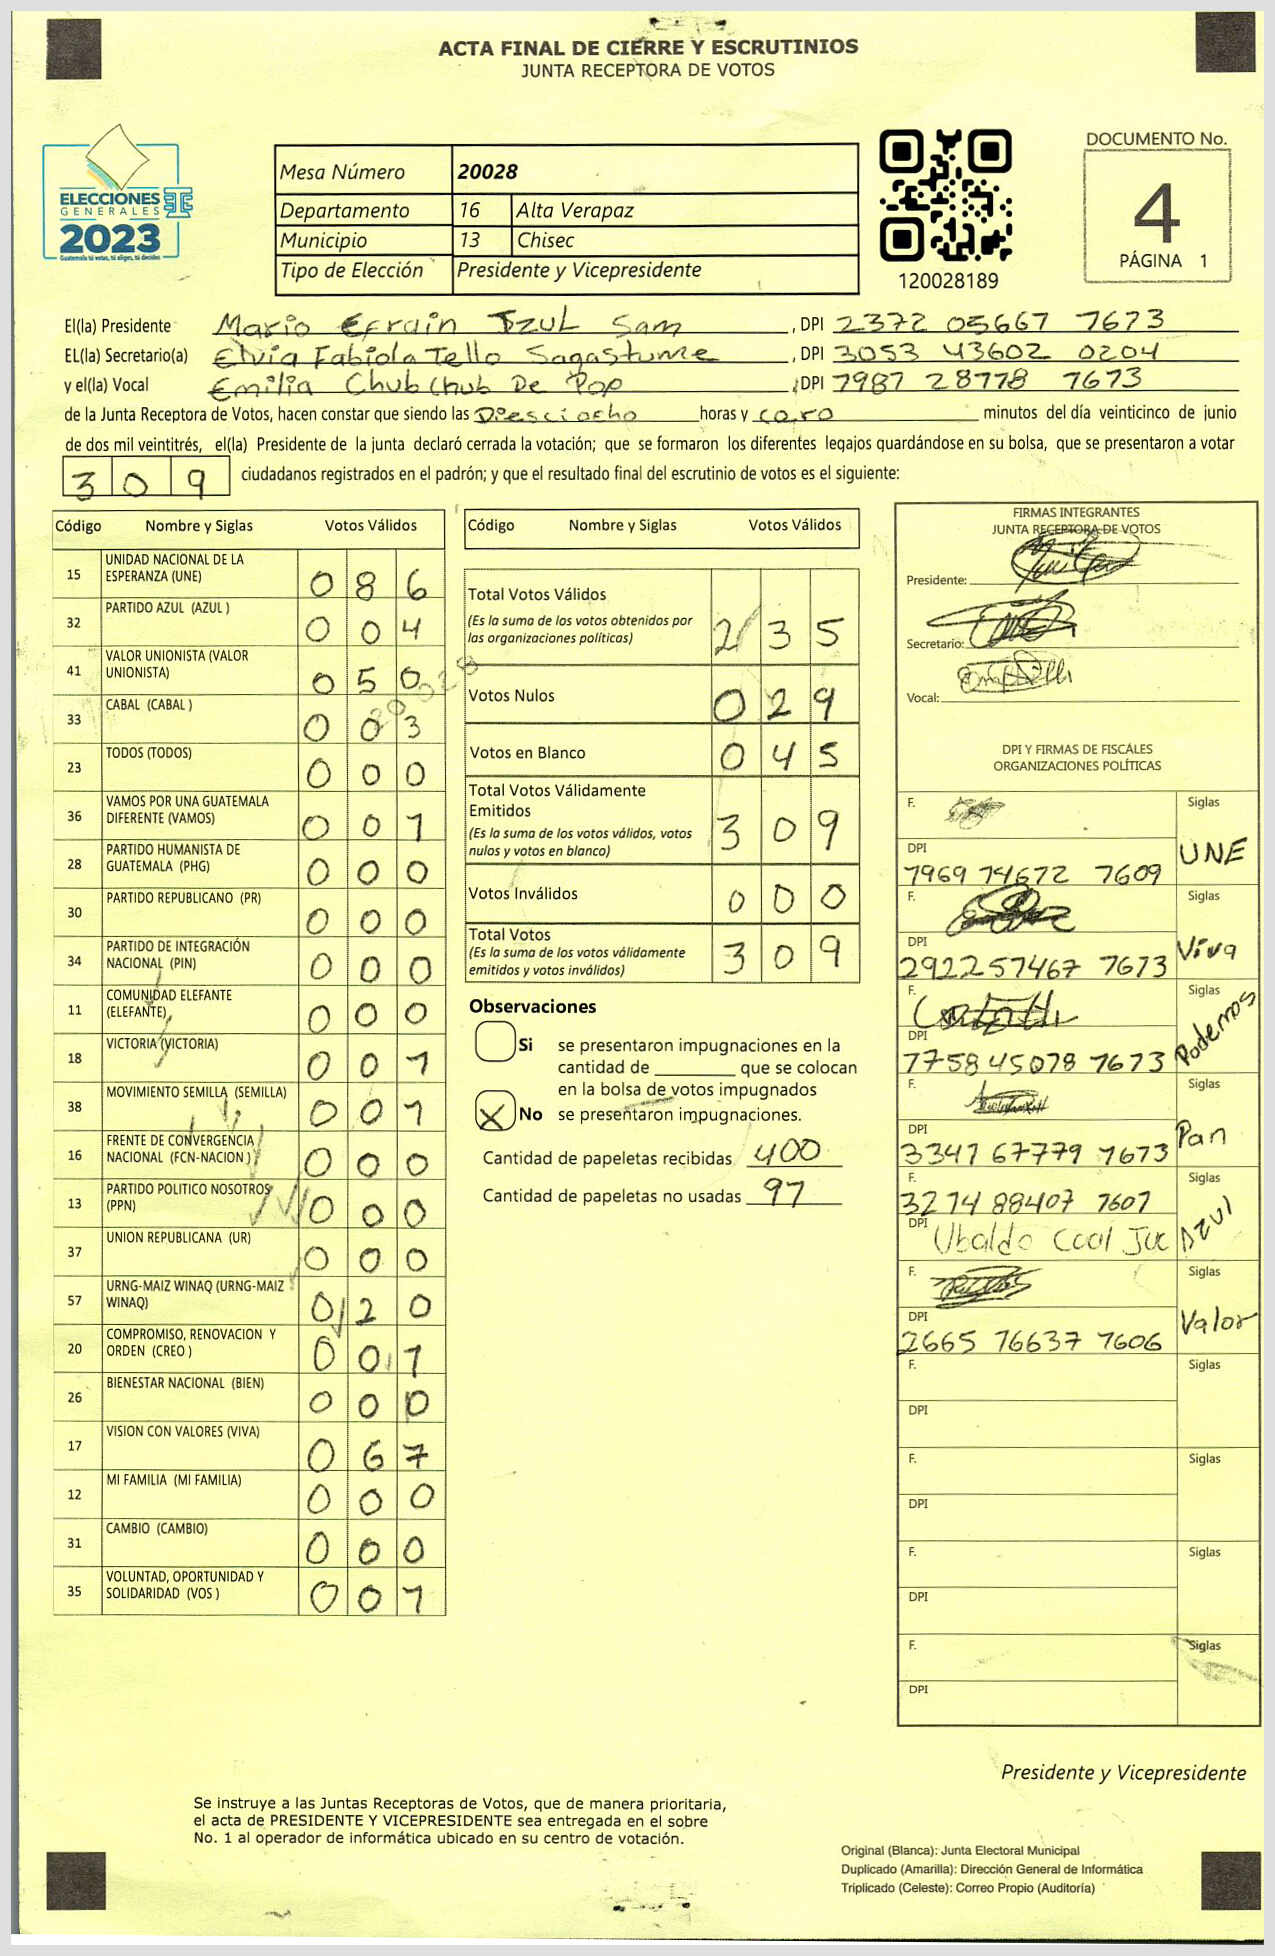 ACTA FINAL DE CIERRE Y ESCRUTINIOS
JUNTA RECEPTORA DE VOTOS
ELECCIONES
GENERALES
2023
Guatemala tú votas, tú eliges, tú decides
Mesa Número 20028
Departamento 16 Alta Verapaz
Municipio 13 Chisec
Tipo de Elección Presidente y Vicepresidente
120028189
DOCUMENTO No.
4
PÁGINA 1
El(la) Presidente Mario Efrain Tzul Sam, DPI 2372 05667 7673
EL(la) Secretario(a) Elvia Fabiola Tello Sagastume, DPI 3053 43602 0204
y el(la) Vocal Emilia Chub Chub De Pop, DPI 7987 28778 7673
de la Junta Receptora de Votos, hacen constar que siendo las Diesciocho horas y caro minutos del día veinticinco de junio
de dos mil veintitrés, el(la) Presidente de la junta declaró cerrada la votación; que se formaron los diferentes legajos quardándose en su bolsa, que se presentaron a votar
309 ciudadanos registrados en el padrón; y que el resultado final del escrutinio de votos es el siguiente:
Código Nombre y Siglas Votos Válidos
15 UNIDAD NACIONAL DE LA ESPERANZA (UNE) 086
32 PARTIDO AZUL (AZUL ) 004
41 VALOR UNIONISTA (VALOR UNIONISTA) 050
20028
33 CABAL (CABAL ) 003
23 TODOS (TODOS) 000
36 VAMOS POR UNA GUATEMALA DIFERENTE (VAMOS) 001
28 PARTIDO HUMANISTA DE GUATEMALA (PHG) 000
30 PARTIDO REPUBLICANO (PR) 000
34 PARTIDO DE INTEGRACIÓN NACIONAL (PIN) 000
11 COMUNIDAD ELEFANTE (ELEFANTE) 000
18 VICTORIA (VICTORIA) 001
38 MOVIMIENTO SEMILLA (SEMILLA) 001
16 FRENTE DE CONVERGENCIA NACIONAL (FCN-NACION ) 000
13 PARTIDO POLITICO NOSOTROS (PPN) 000
37 UNION REPUBLICANA (UR) 000
57 URNG-MAIZ WINAQ (URNG-MAIZ WINAQ) 020
20 COMPROMISO, RENOVACION Y ORDEN (CREO ) 001
26 BIENESTAR NACIONAL (BIEN) 000
17 VISION CON VALORES (VIVA) 067
12 MI FAMILIA (MI FAMILIA) 000
31 CAMBIO (CAMBIO) 000
35 VOLUNTAD, OPORTUNIDAD Y SOLIDARIDAD (VOS ) 001
Código Nombre y Siglas Votos Válidos
Total Votos Válidos 235
(Es la suma de los votos obtenidos por
las organizaciones políticas)
Votos Nulos 029
Votos en Blanco 045
Total Votos Válidamente
Emitidos 309
(Es la suma de los votos válidos, votos
nulos y votos en blanco)
Votos Inválidos 000
Total Votos 309
(Es la suma de los votos válidamente
emitidos y votos inválidos)
Observaciones
Si se presentaron impugnaciones en la
cantidad de ________ que se colocan
en la bolsa de votos impugnados
X No se presentaron impugnaciones.
Cantidad de papeletas recibidas 400
Cantidad de papeletas no usadas 97
FIRMAS INTEGRANTES
JUNTA RECEPTORA DE VOTOS
Presidente:
Secretario:
Vocal:
DPI Y FIRMAS DE FISCALES
ORGANIZACIONES POLÍTICAS
F. Siglas
UNE
DPI
7969 74672 7609
F. Siglas
Viva
DPI
2922 57467 7673
F. Siglas
Podemos
DPI
7758 45078 7673
F. Siglas
Pan
DPI
3347 67779 7673
F. Siglas
3274 88407 7607
Azul
DPI Ubaldo Caal Juc
F. Siglas
Valor
DPI
2665 76637 7606
F. Siglas
DPI
F. Siglas
DPI
F. Siglas
DPI
F. Siglas
DPI
Presidente y Vicepresidente
Se instruye a las Juntas Receptoras de Votos, que de manera prioritaria,
el acta de PRESIDENTE Y VICEPRESIDENTE sea entregada en el sobre
No. 1 al operador de informática ubicado en su centro de votación.
Original (Blanca): Junta Electoral Municipal
Duplicado (Amarilla): Dirección General de Informática
Triplicado (Celeste): Correo Propio (Auditoría)